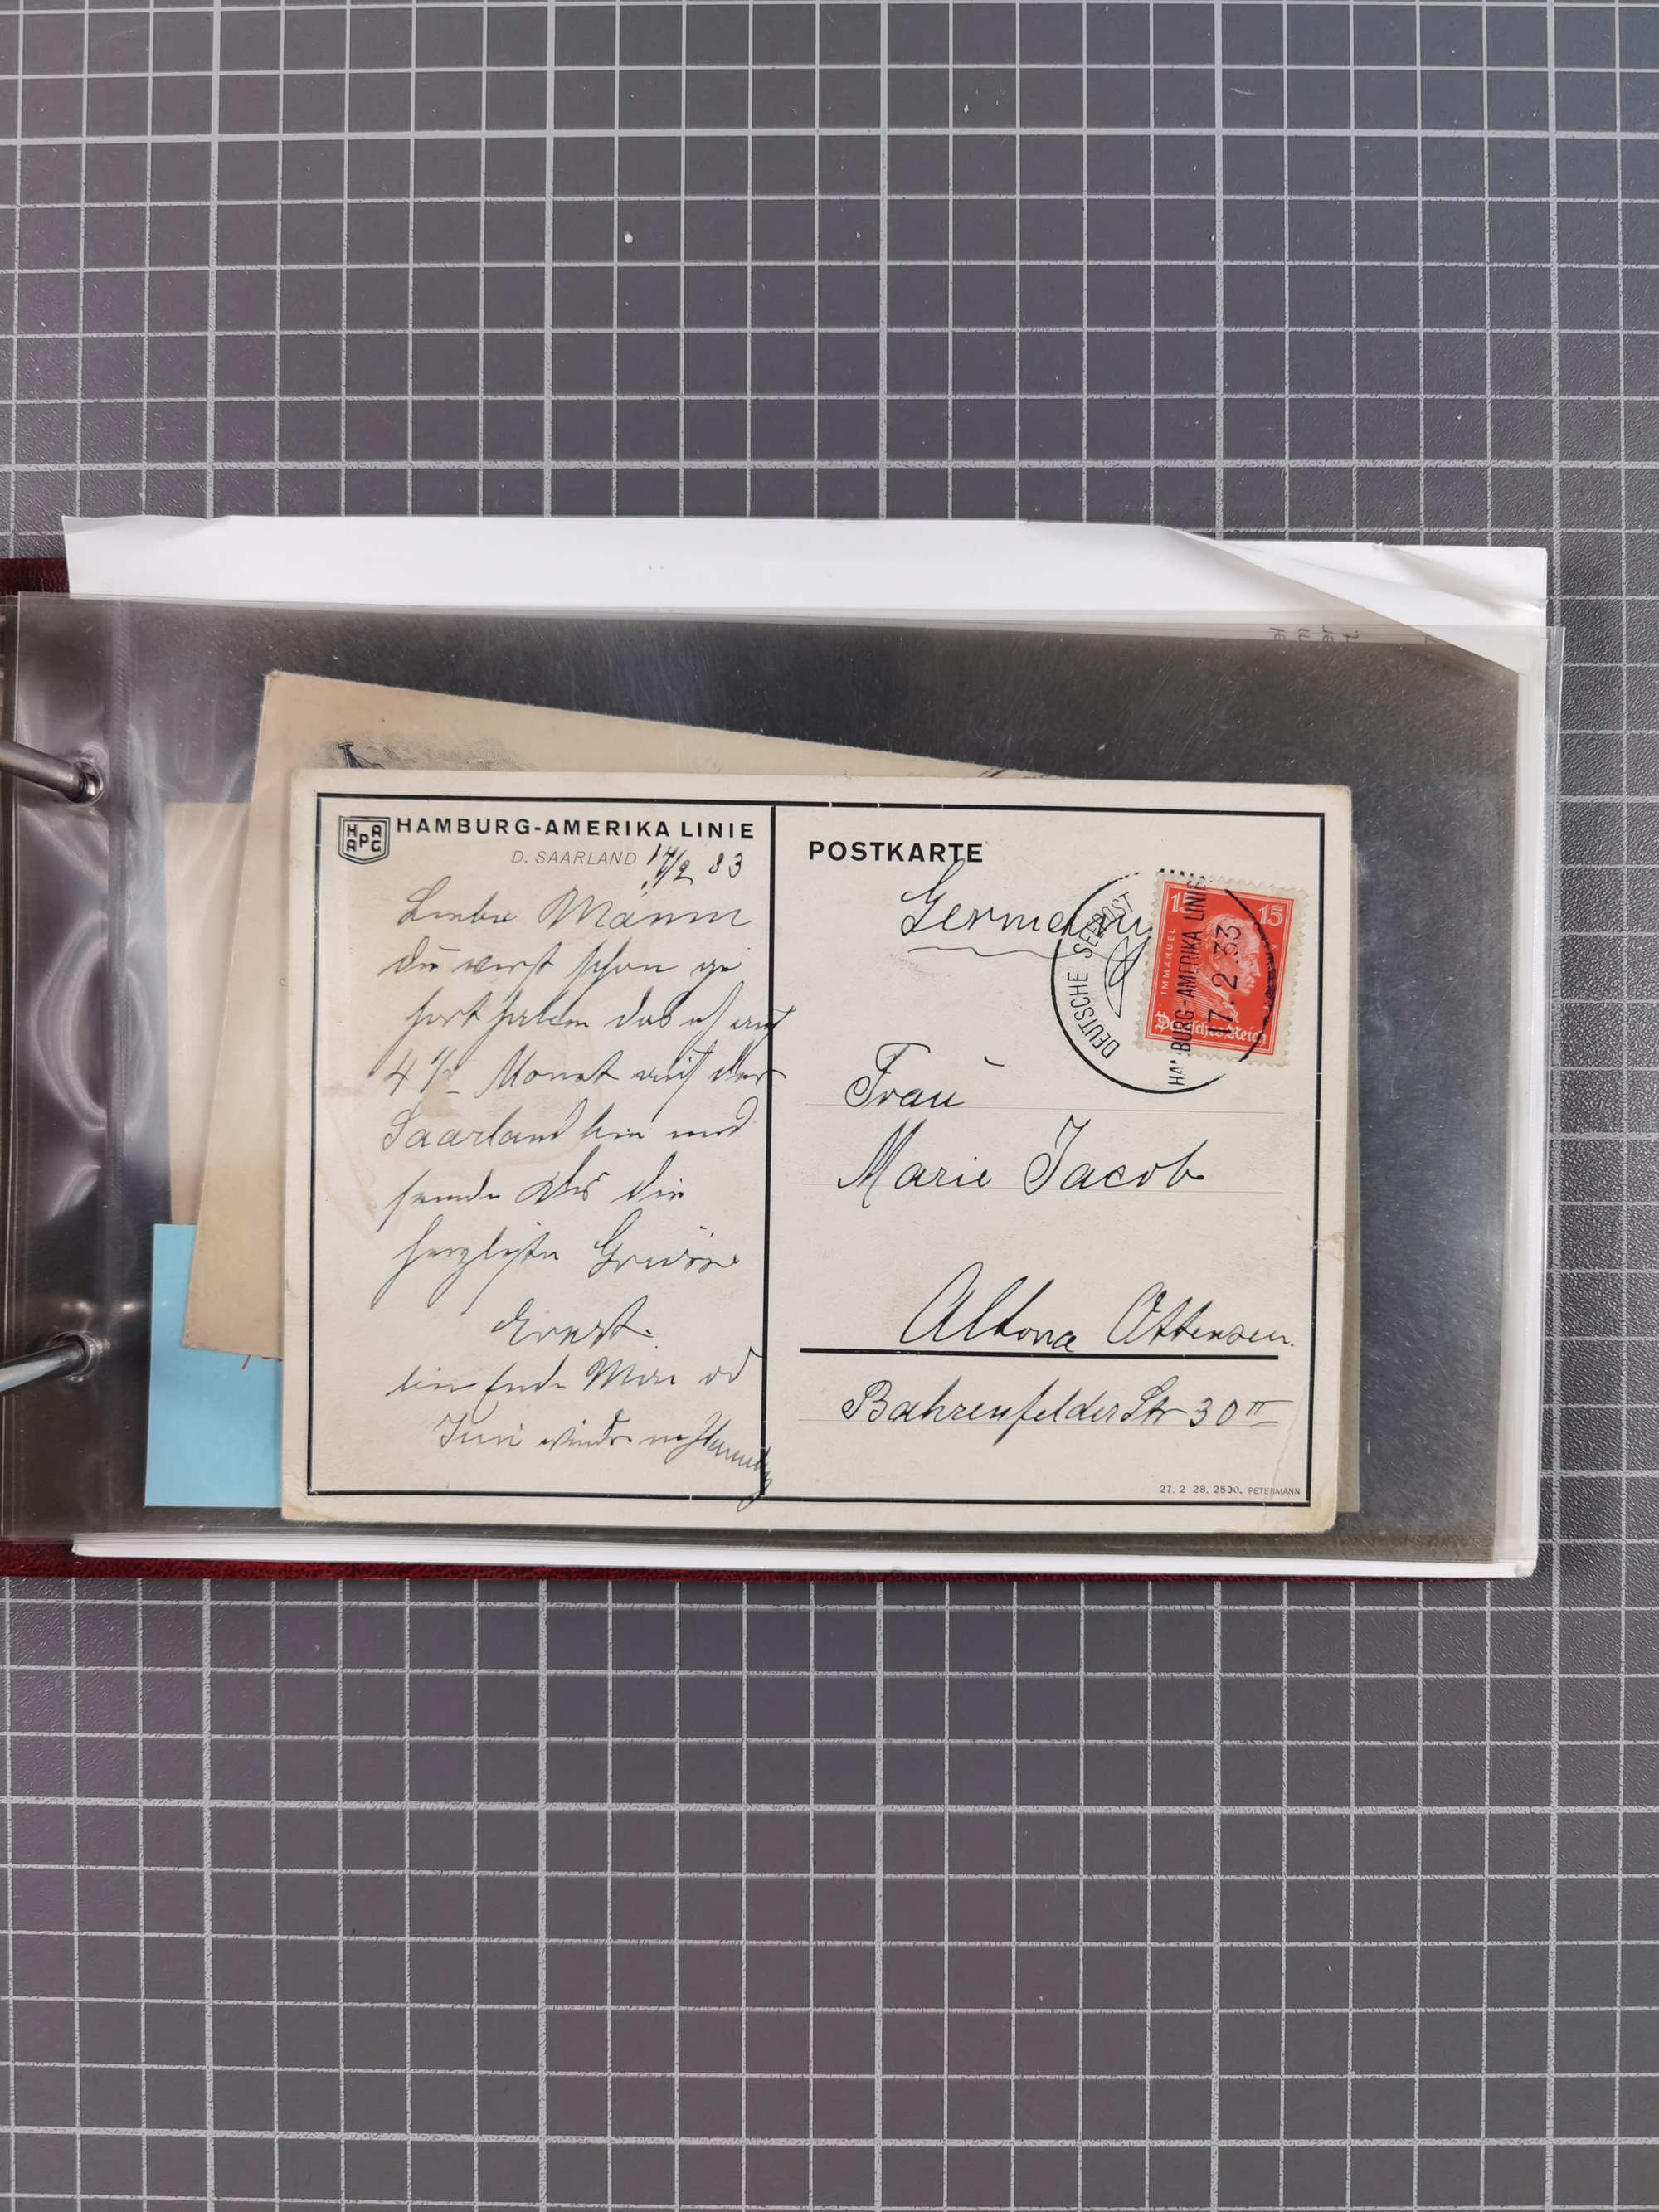 HAPAG
HAMBURG-AMERIKA LINIE
D. SAARLAND
14/2 33
Liebe Mama
Du wirst schon ge
hört haben das ich auf
4 ½ Monat auf der
Saarland bin und
sende Dir die
herzlichsten Grüsse
Ernst.
bin Ende Mai od
Juni wieder in Hamburg
POSTKARTE
Germany
DEUTSCHE SEEPOST
HAMBURG-AMERIKA LINIE
17.2.33
15 15
IMMANUEL K
Deutsches Reich
Frau
Marie Jacob
Altona Ottensen.
Bahrenfelder Str 30 II
27. 2 28. 2500. PETERMANN